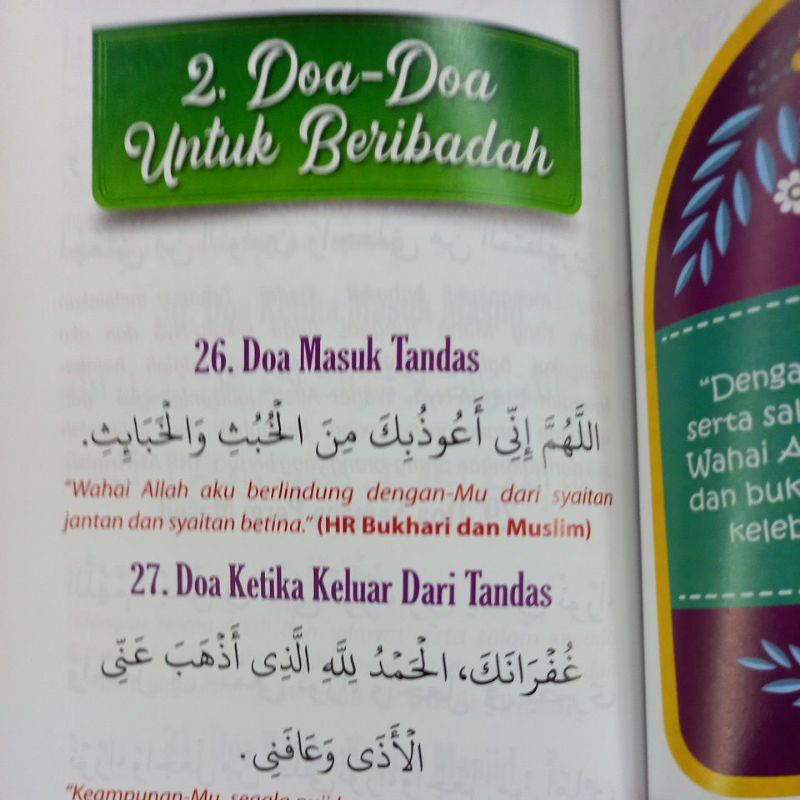 2. Doa-Doa
Untuk Beribadah
26. Doa Masuk Tandas
اللَّهُمَّ إِنِّي أَعُوذُبِكَ مِنَ الْخُبُثِ وَالْخَبَايِثِ.
"Wahai Allah aku berlindung dengan-Mu dari syaitan
jantan dan syaitan betina." (HR Bukhari dan Muslim)
27. Doa Ketika Keluar Dari Tandas
غُفْرَانَكَ، الْحَمْدُ لِلَّهِ الَّذِى أَذْهَبَ عَنِّي
الْأَذَى وَعَافَنِى.
"Keampunan-Mu, segala
"Denga
serta sal
Wahai A
dan buk
keleb